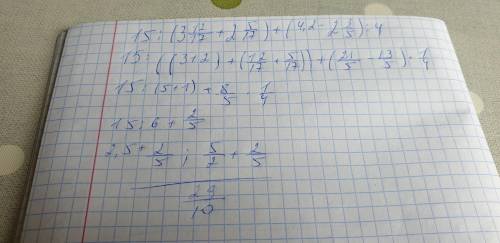 15:(3 12/17 + 2 5/17) + (4,2 - 2 3/5):4
15:((3+2)+(12/17+5/17))+(21/5-13/5)·1/4
15:(5+1)+8/5·1/4
15:6+2/5
2,5+2/5; 5/2+2/5
29/10